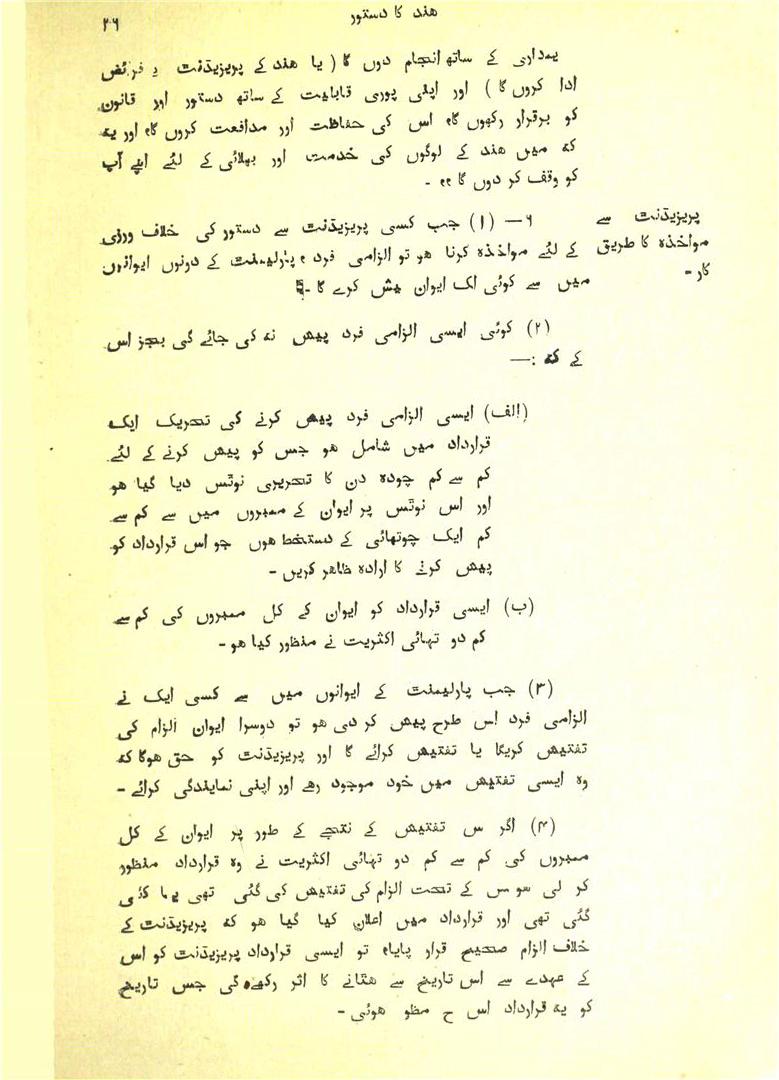 ۲۶
هند کا دستور
یمداری کے ساتھ انجام دوں گا (یا هند کے پریزیڈنٹ فرائض
ادا کروں گا) اور اپنی پوری قابلیت کے ساتھ دستور اور قانون
کو برقرار رکھوں گا، اس کی حفاظت اور مدافعت کروں گا، اور یه
که میں هند کے لوگوں کی خدمت اور بھلائی کے لئے اپنے آپ
کو وقف کر دوں گا ،، -
پریزیڈنٹ سے
مواخذه کا طریق
کار -
۶— (۱) جب کسی پریزیڈنٹ سے دستور کی خلاف ورزی
کے لئے مواخذه کرنا هو تو الزامی فرد ، پارلیمنٹ کے دونوں ایوانوں
میں سے کوئی اک ایوان پیش کرے گا -
(۲) کوئی ایسی الزامی فرد پیش نه کی جائے گی بجز اس
کے که :—
(الف) ایسی الزامی فرد پیش کرنے کی تحریک ایک
قرارداد میں شامل هو جس کو پیش کرنے کے لئے
کم سے کم چوده دن کا تحریری نوٹس دیا گیا هو
اور اس نوٹس پر ایوان کے ممبروں میں سے کم سے
کم ایک چوتھائی کے دستخط هوں جو اس قرارداد کو
پیش کرنے کا اراده ظاهر کریں -
(ب) ایسی قرارداد کو ایوان کے کل ممبروں کی کم سے
کم دو تہائی اکثریت نے منظور کیا هو -
(۳) جب پارلیمنٹ کے ایوانوں میں سے کسی ایک نے
الزامی فرد اس طرح پیش کر دی هو تو دوسرا ایوان الزام کی
تفتیش کریگا یا تفتیش کرائے گا اور پریزیڈنٹ کو حق هوگا که
وه ایسی تفتیش میں خود موجود رهے اور اپنی نمایندگی کرائے -
(۴) اگر س تفتیش کے نتیجے کے طور پر ایوان کے کل
ممبروں کی کم سے کم دو تہائی اکثریت نے وه قرارداد منظور
کر لی هو س کے تحت الزام کی تفتیش کی گئی تھی یا کرائی
گئی تھی اور قرارداد میں اعلان کیا گیا هو که پریزیڈنٹ کے
خلاف الزام صحیح قرار پایا، تو ایسی قرارداد پریزیڈنٹ کو اس
کے عہدے سے اس تاریخ سے هٹانے کا اثر رکھے گی جس تاریخ
کو یه قرارداد اس ح منظو هوئی -